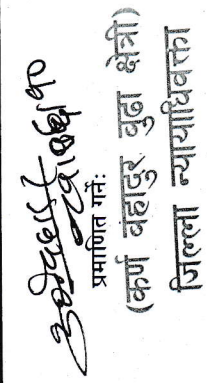 प्रमाणित गर्ने:
(कर्ण बहादुर बुढा क्षेत्री)
जिल्ला न्यायाधिवक्ता